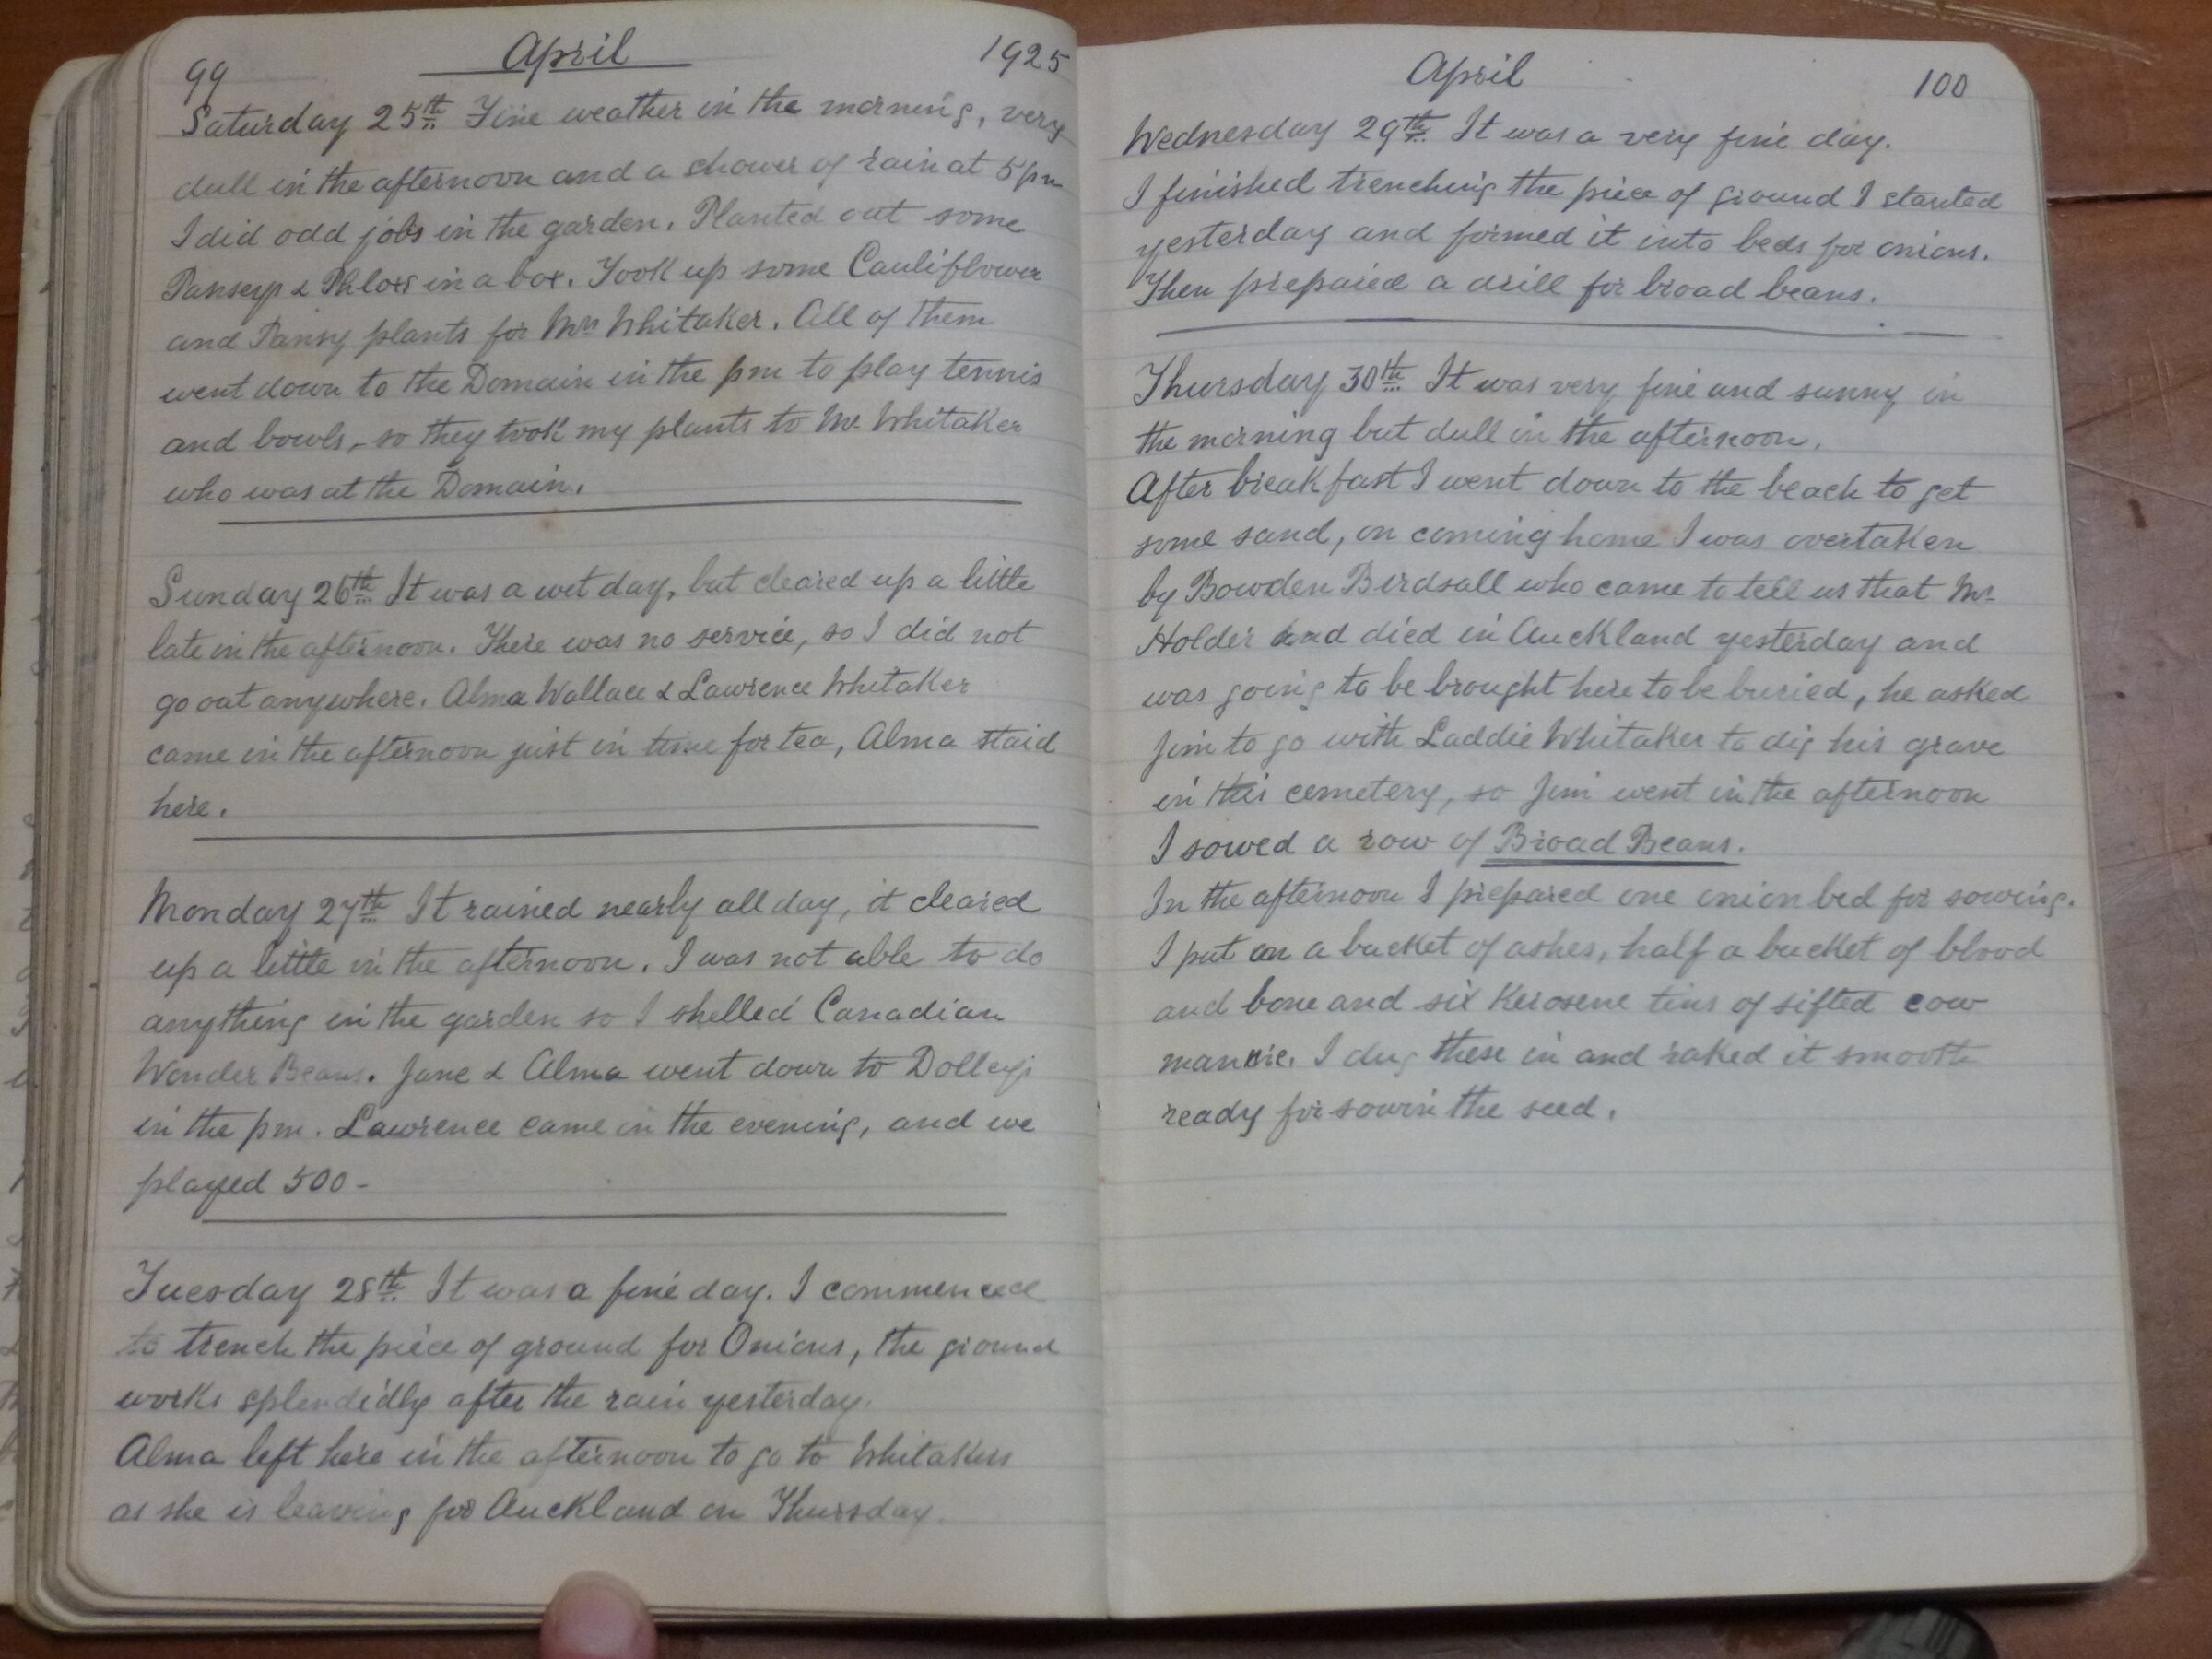 99 April 1925
Saturday 25th Fine weather in the morning, very
dull in the afternoon and a shower of rain at 5 pm
I did odd jobs in the garden. Planted out some
Pansys & Phlox in a box. Took up some Cauliflower
and Pansy plants for Mrs Whitaker. All of them
went down to the Domain in the pm to play tennis
and bowls, so they took my plants to Mr. Whitaker
who was at the Domain.
Sunday 26th It was a wet day, but cleared up a little
late in the afternoon. There was no service, so I did not
go out anywhere. Alma Wallace & Lawrence Whitaker
came in the afternoon just in time for tea, Alma staid
here.
Monday 27th It rained nearly all day, it cleared
up a little in the afternoon. I was not able to do
anything in the garden so I shelled Canadian
Wonder Beans. Jane & Alma went down to Dolleys
in the pm. Lawrence came in the evening, and we
played 500-
Tuesday 28th It was a fine day. I commenced
to trench the piece of ground for Onions, the ground
works splendidly after the rain yesterday.
Alma left here in the afternoon to go to Whitakers
as she is leaving for Auckland on Thursday.
April 100
Wednesday 29th It was a very fine day.
I finished trenching the piece of ground I started
yesterday and formed it into beds for onions.
Then prepared a drill for broad beans.
Thursday 30th It was very fine and sunny in
the morning but dull in the afternoon.
After breakfast I went down to the beach to get
some sand, on coming home I was overtaken
by Bowden Birdsall who came to tell us that Mr.
Holder had died in Auckland yesterday and
was going to be brought here to be buried, he asked
Jim to go with Laddie Whitaker to dig his grave
in this cemetery, so Jim went in the afternoon
I sowed a row of Broad Beans.
In the afternoon I prepared one onion bed for sowing.
I put on a bucket of ashes, half a bucket of blood
and bone and six Kerosene tins of sifted cow
manure. I dug these in and raked it smooth
ready for sowin the seed.